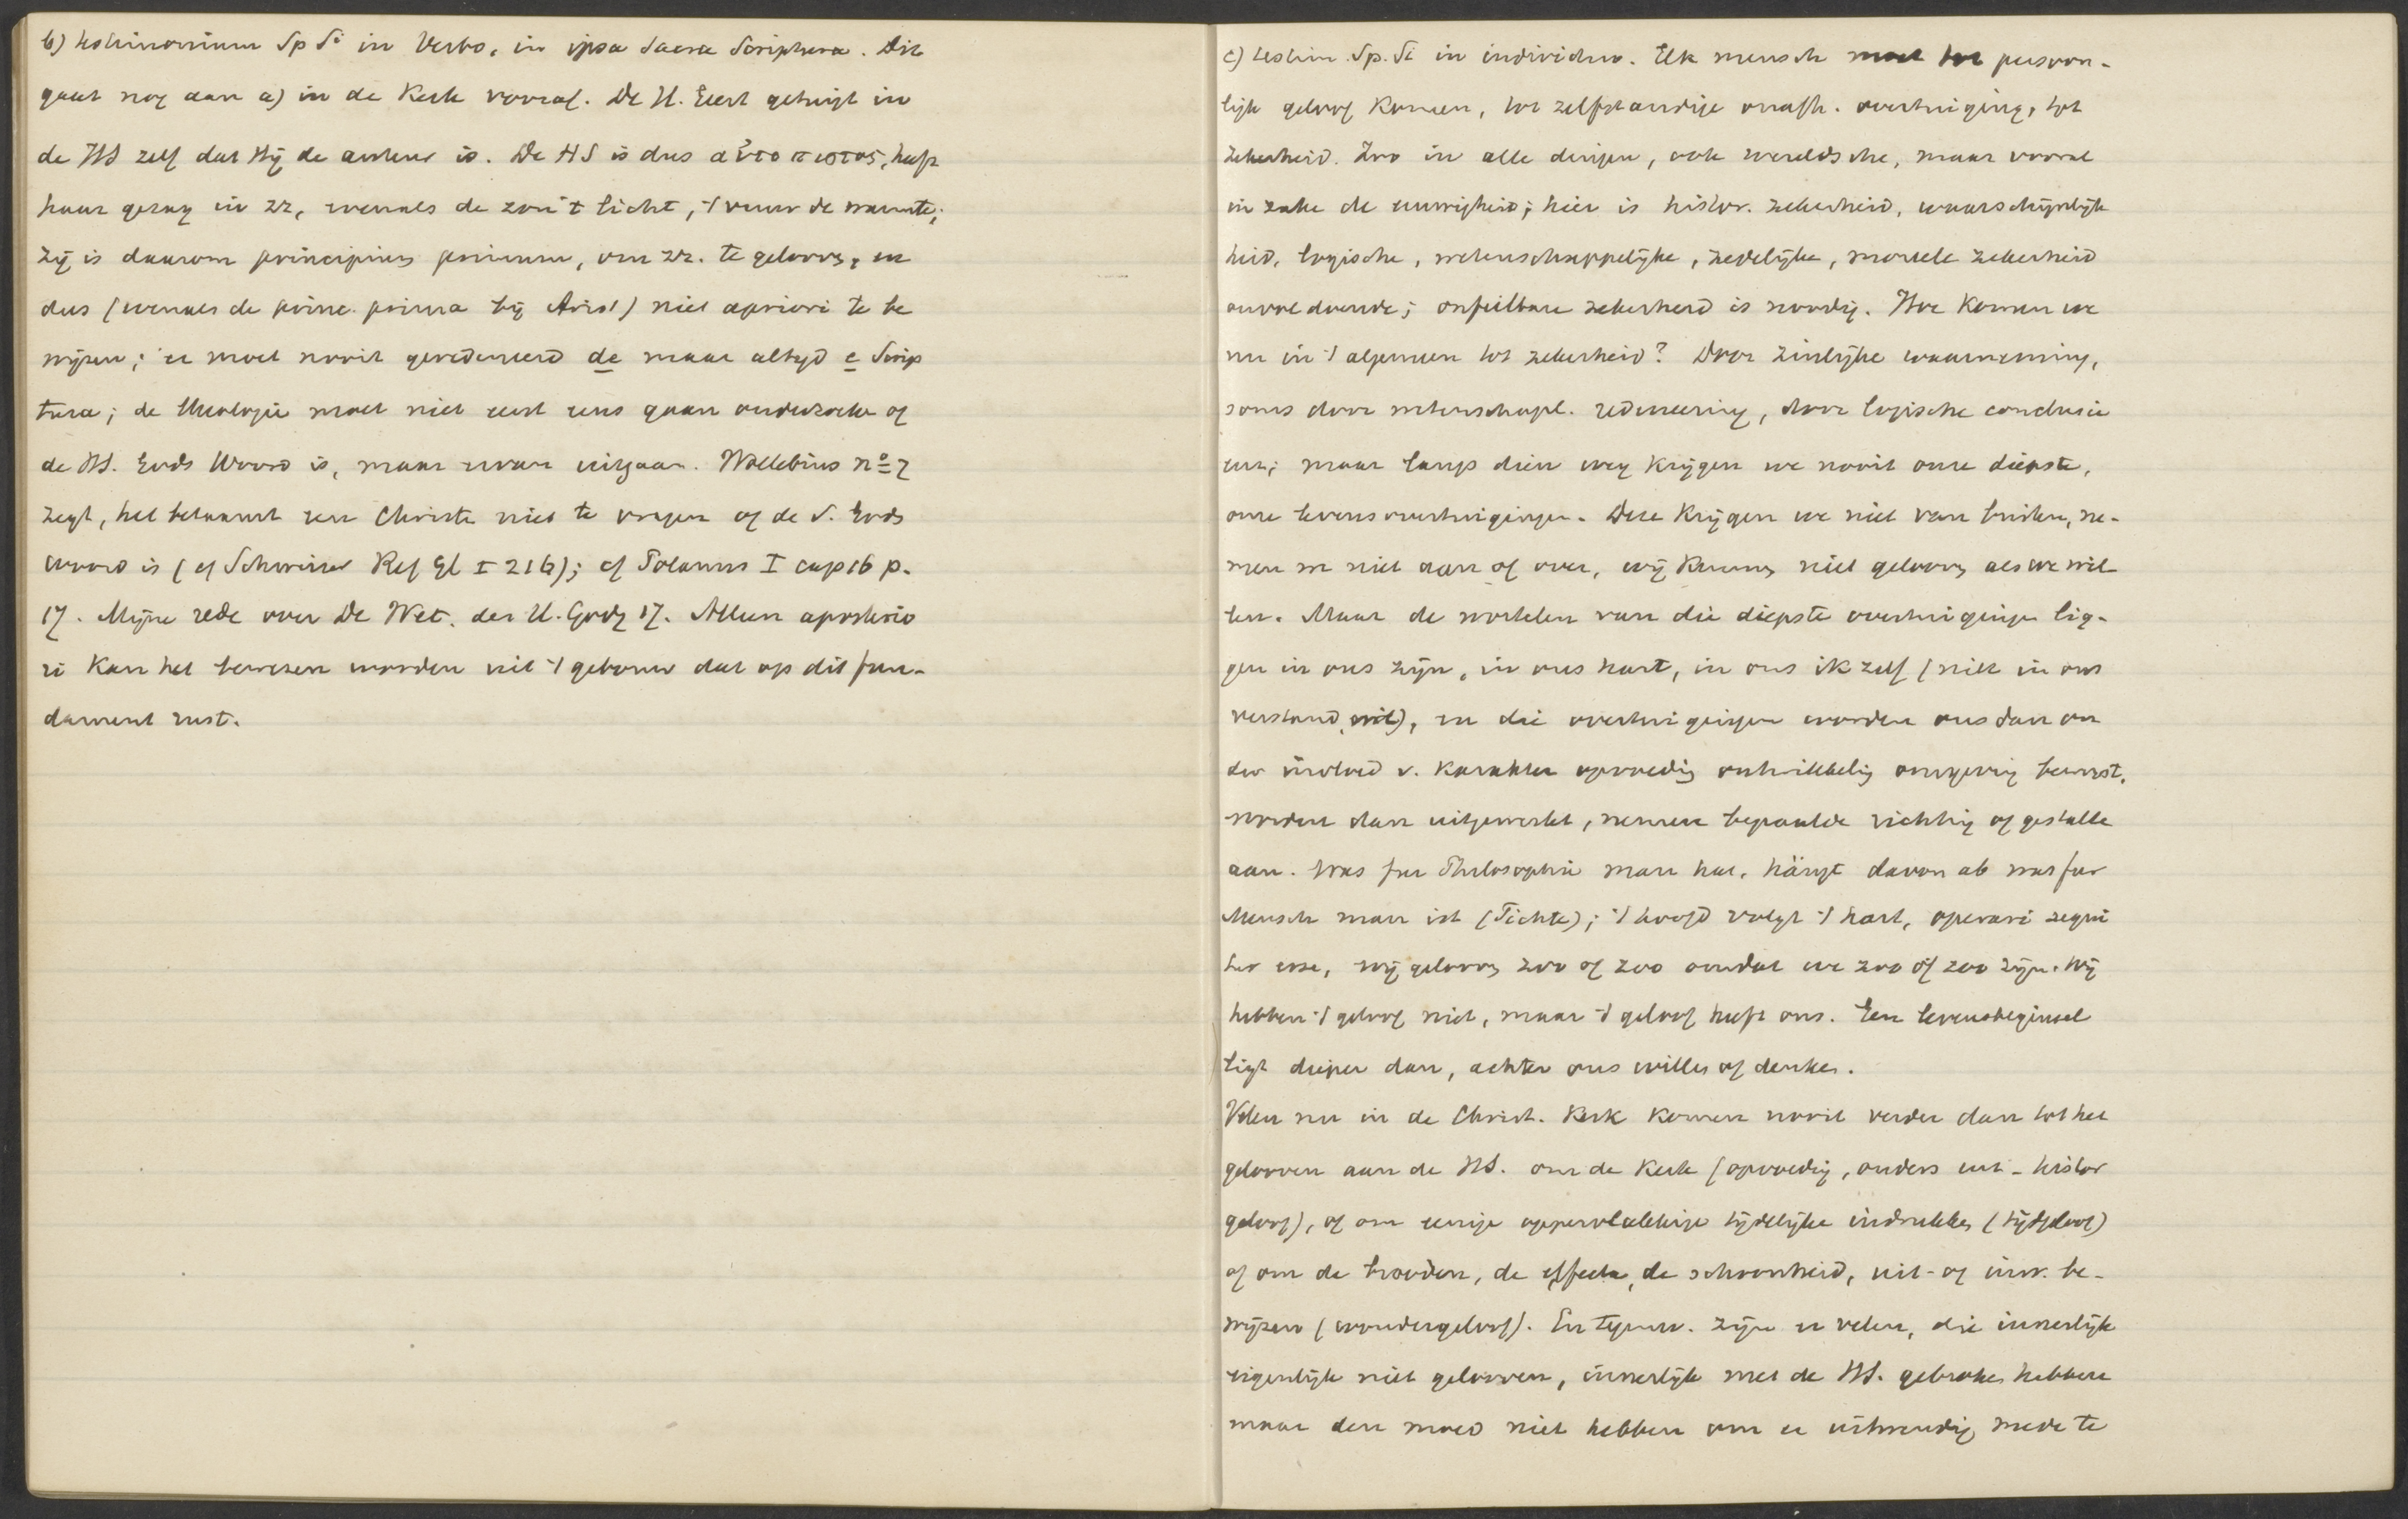 b) testimonium Sp Si in Verbo, in ipsa Sacra Scriptura. Dit
gaat nog aan a) in de Kerk vooraf. De H. Geest getuigt in
de HS zelf dat Hij de auteur is. De HS is dus αὐτοπιστος, heeft
haar gezag in zz, evenals de zon 't licht, 't vuur de warmte;
zij is daarom principium primum, om zz. te gelooven, en
dus (evenals de princ. prima bij Arist) niet apriori te be
wijzen; er moet nooit geredeneerd de maar altijd e Scrip
tura; de theologie moet niet eerst eens gaan onderzoeken of
de HS. Gods Woord is, maar ervan uitgaan. Wollebius no 7
zegt, het betaamt een Christen niet te vragen of de S. Gods
woord is (cf Schweizer Ref Gl I 216); cf Polanus I cap 16 p.
17. Mijne rede over De Wet. der H. Godg 17. Alleen aposterio
ri kan het bewezen worden uit 't gebouw dat op dit fun-
dament rust.
c) testim. Sp. Si in individuo. Elk mensch moet tot persoon-
lijk geloof komen, tot zelfstandige onafh. overtuiging, tot
zekerheid. Zoo in alle dingen, ook wereldsche, maar vooral
in zake de eeuwigheid; hier is histor. zekerheid, waarschijnlijk
heid, logische, wetenschappelijke, zedelijke, moreele zekerheid
onvoldoende; onfeilbare zekerheid is noodig. Hoe komen we
nu in 't algemeen tot zekerheid? Door zinlijke waarneming,
soms door wetenschapl. redeneering, door logische conclusie
enz; maar langs dien weg krijgen we nooit onze diepste,
onze levensovertuigingen. Deze krijgen we niet van buiten, ne-
men we niet aan of over, wij kunnen niet gelooven als we wil
len. Maar de wortelen van die diepste overtuigingen lig-
gen in ons zijn, in ons hart, in ons ik zelf (niet in ons
verstand, wil), en die overtuigingen worden ons dan on
der invloed v. karakter opvoeding ontwikkeling omgeving bewust,
worden dan uitgewerkt, nemen bepaalde richting of gestalte
aan. Was fur Philosophie man hat, hängt davon ab was fur
Mensch man ist (Fichte); 't hoofd volgt 't hart, operari sequi
tur esse, wij gelooven zoo of zoo omdat we zoo of zoo zijn. Wij
hebben 't geloof niet, maar 't geloof heeft ons. Een levensbeginsel
ligt dieper dan, achter ons willen of denken.
Velen nu in de Christ. Kerk komen nooit verder dan tot het
gelooven aan de HS. om de Kerk (opvoeding, ouders enz - histor
geloof), of om eenige oppervlakkige tijdelijke indrukken (tijdgeloof)
of om de wonderen, de effecten, de schoonheid, uit- of inw. be-
wijzen (wondergeloof). En tegenw. zijn er velen, die innerlijk
eigenlijk niet gelooven, innerlijk met de HS. gebroken hebben
maar den moed niet hebben om er uitwendig mede te